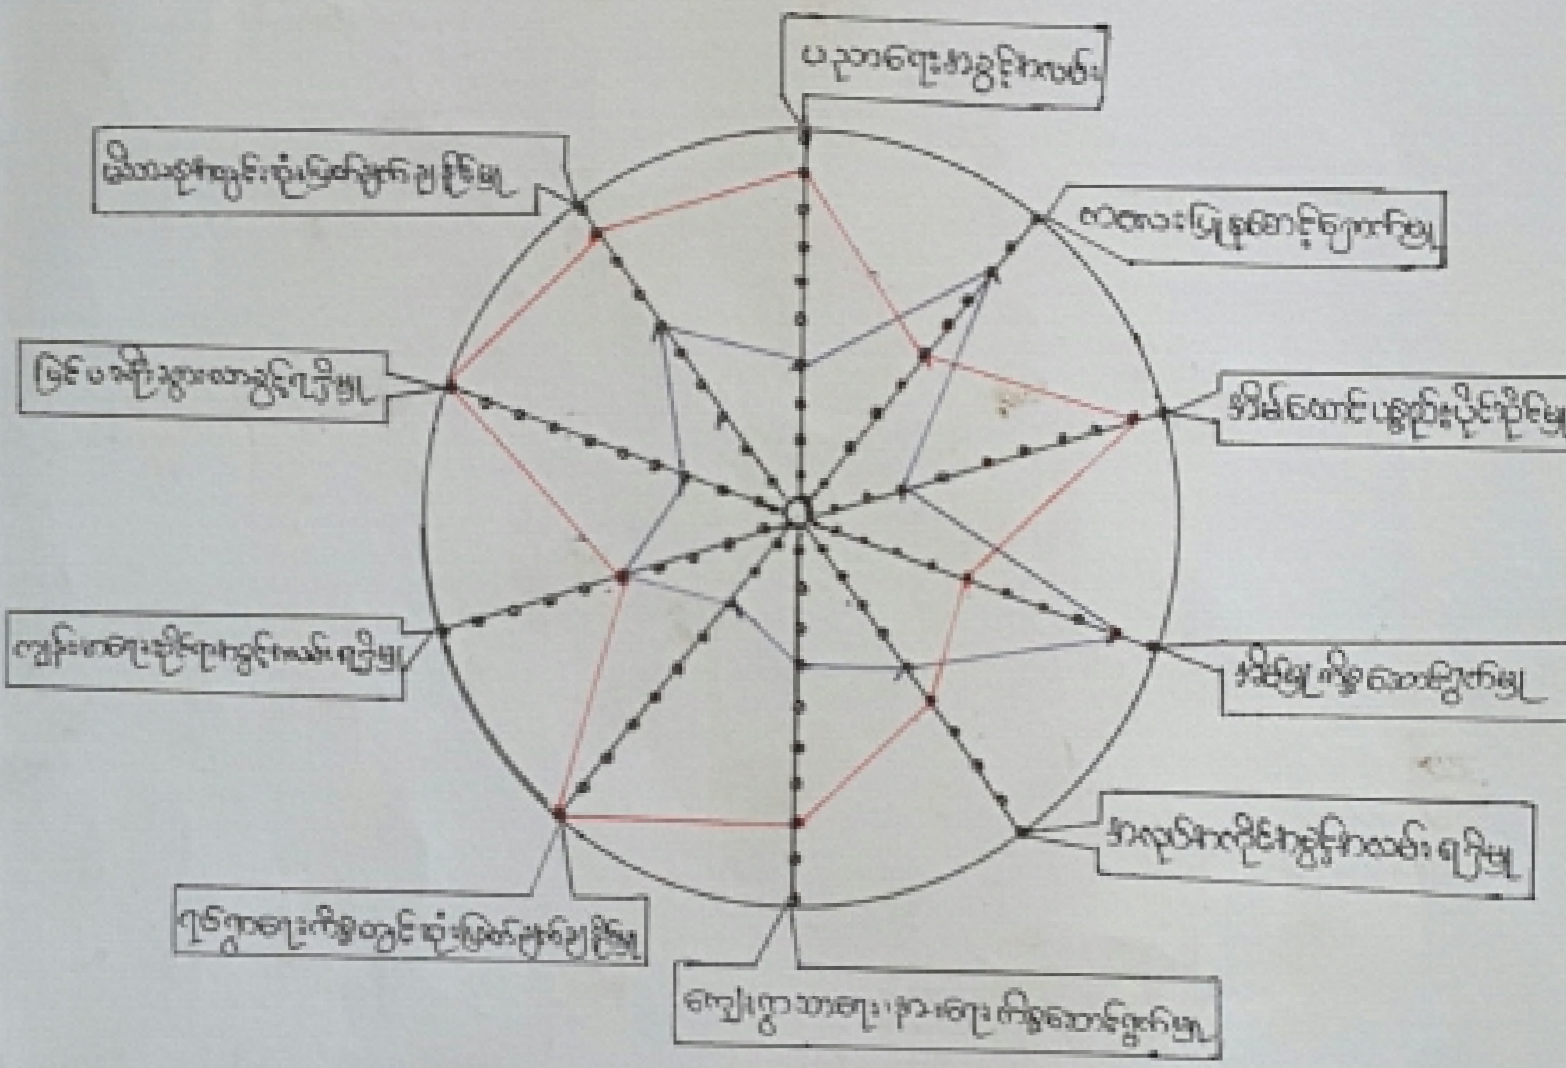 ပညာရေးအခွင့်အလမ်း
ကလေးပြုစုစောင့်ရှောက်မှု
အိမ်ထောင်ပစ္စည်းပိုင်ဆိုင်မှု
အိမ်မှုကိစ္စဆောင်ရွက်မှု
အလုပ်အကိုင်အခွင့်အလမ်းရရှိမှု
ကျေးရွာသာရေး၊နာရေးကိစ္စဆောင်ရွက်မှု
ရပ်ရွာရေးကိစ္စတွင်ဆုံးဖြတ်ချက်ချနိုင်မှု
ကျန်းမာရေးဆိုင်ရာအခွင့်အလမ်းရရှိမှု
ပြင်ပခရီးသွားလာခွင့်ရရှိမှု
မိသားစုအတွင်းဆုံးဖြတ်ချက်ချနိုင်မှု